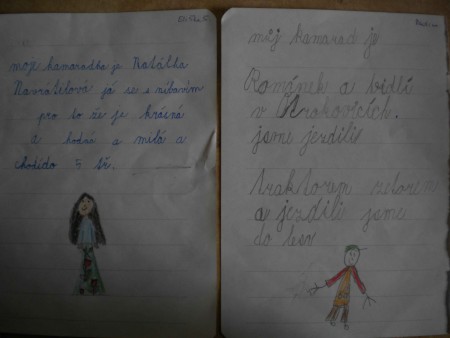 Eliška C
mojě kamaradka je Natálka
Navrátelová já se s ní bavím
pro to že je krásná
a hodná a milá a
chotído 5 tř.
můj kamarad je
Románek a bidlí
v Otrokovicích.
jsme jezdili
traktorem zetorem
a jezdili jsme
do lesa